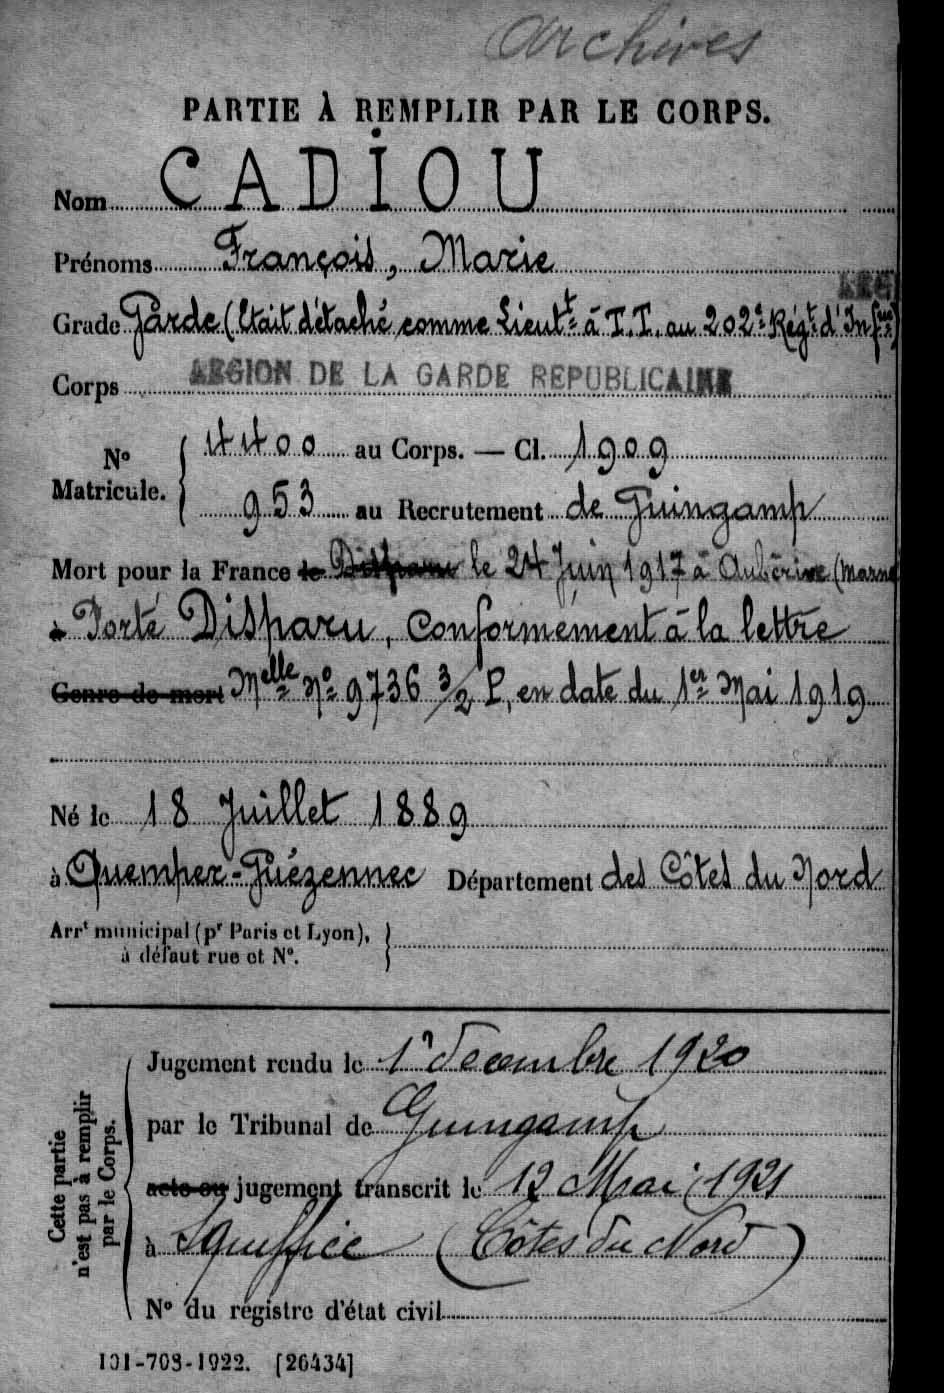 Archives
PARTIE À REMPLIR PAR LE CORPS.
Nom CADIOU
Prénoms François, Marie
Grade Garde (Etait détaché comme Lieutt à T.T. au 202e Régt d'Infrie)
Corps LEGION DE LA GARDE REPUBLICAINE
No Matricule. { 4400 au Corps. — Cl. 1909
953 au Recrutement de Guingamp
Mort pour la France le Disparu le 24 Juin 1917 à Aubérive (Marne
à Porté Disparu, conformément à la lettre
Genre de mort Melle No 9736 3/2 P, en date du 1er Mai 1919
Né le 18 Juillet 1889
à Quemper-Guézennec Département des Côtes du Nord
Arrt municipal (pr Paris et Lyon), }
à défaut rue et No.
Cette partie n'est pas à remplir par le Corps.
Jugement rendu le 1r decembre 1920
par le Tribunal de Guingamp
acte ou jugement transcrit le 12 Mai 1921
à Squiffiec (Côtes du Nord)
No du registre d'état civil
101-708-1922. [26434]